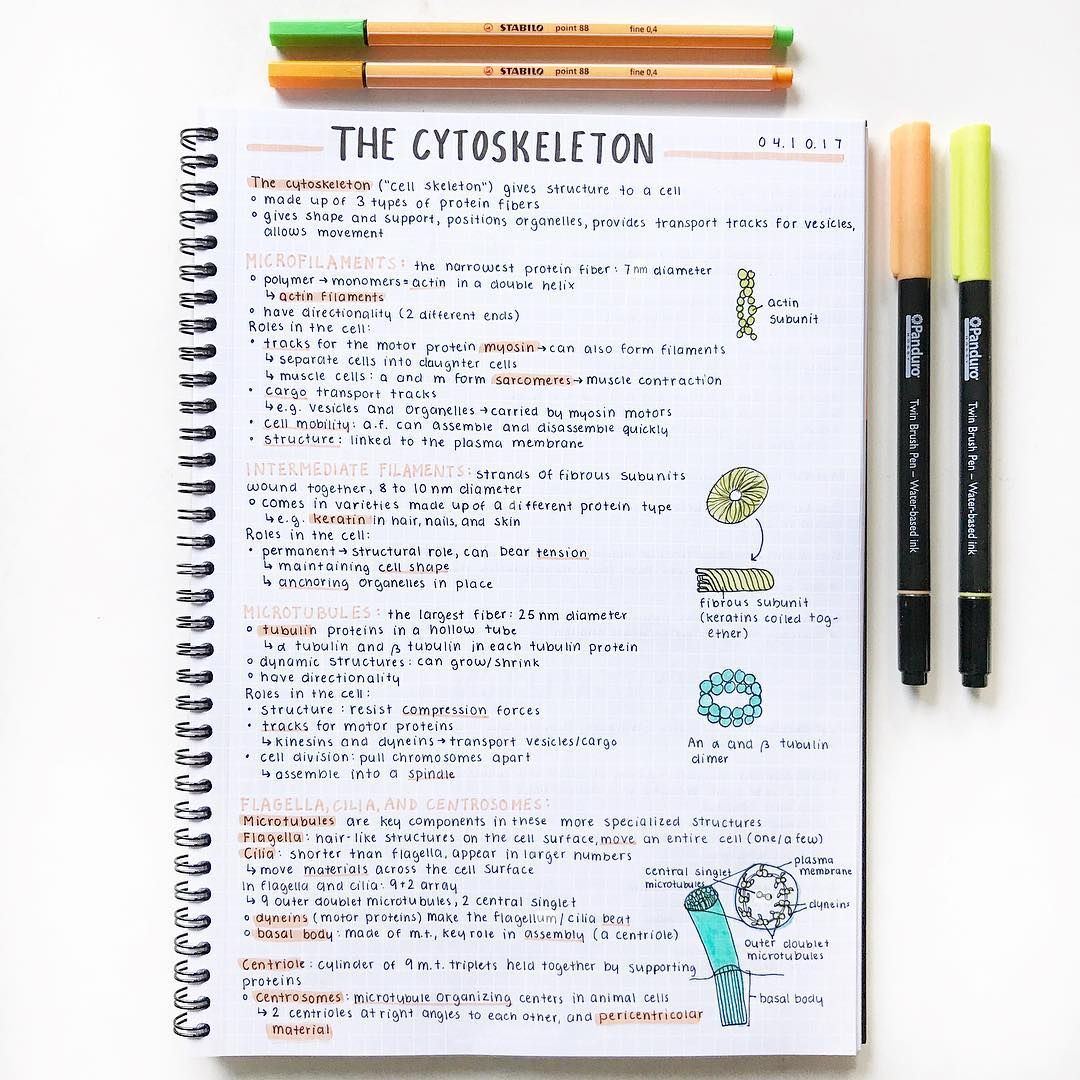 STABILO point 88 fine 0,4
STABILO point 88 fine 0,4
THE CYTOSKELETON
04.10.17
The cytoskeleton ("cell skeleton") gives structure to a cell
° made up of 3 types of protein fibers
° gives shape and support, positions organelles, provides transport tracks for vesicles,
allows movement
MICROFILAMENTS: the narrowest protein fiber: 7 nm diameter
° polymer → monomers = actin in a double helix
↳ actin filaments
° have directionality (2 different ends)
Roles in the cell:
• tracks for the motor protein myosin → can also form filaments
↳ separate cells into daughter cells
↳ muscle cells: a and m form sarcomeres → muscle contraction
• cargo transport tracks
↳ e.g. vesicles and organelles → carried by myosin motors
• cell mobility: a.f. can assemble and disassemble quickly
• structure: linked to the plasma membrane
actin
subunit
INTERMEDIATE FILAMENTS: strands of fibrous subunits
wound together, 8 to 10 nm diameter
° comes in varieties made up of a different protein type
↳ e.g. keratin in hair, nails, and skin
Roles in the cell:
• permanent → structural role, can bear tension
↳ maintaining cell shape
↳ anchoring organelles in place
fibrous subunit
(keratins coiled tog-
ether)
MICROTUBULES: the largest fiber: 25 nm diameter
° tubulin proteins in a hollow tube
↳ α tubulin and β tubulin in each tubulin protein
° dynamic structures: can grow/shrink
° have directionality
Roles in the cell:
• structure: resist compression forces
• tracks for motor proteins
↳ kinesins and dyneins → transport vesicles/cargo
• cell division: pull chromosomes apart
↳ assemble into a spindle
An α and β tubulin
dimer
FLAGELLA, CILIA, AND CENTROSOMES:
Microtubules are key components in these more specialized structures
Flagella: hair-like structures on the cell surface, move an entire cell (one/a few)
Cilia: shorter than flagella, appear in larger numbers
↳ move materials across the cell surface
In flagella and cilia: 9+2 array
↳ 9 outer doublet microtubules, 2 central singlet
° dyneins (motor proteins) make the flagellum/cilia beat
° basal body: made of m.t., key role in assembly (a centriole)
Centriole: cylinder of 9 m.t. triplets held together by supporting
proteins
° Centrosomes: microtubule organizing centers in animal cells
↳ 2 centrioles at right angles to each other, and pericentricolar
material
central singlet
microtubules
plasma
membrane
dyneins
outer doublet
microtubules
basal body
Panduro
Twin Brush Pen – Water-based ink
Panduro
Twin Brush Pen – Water-based ink